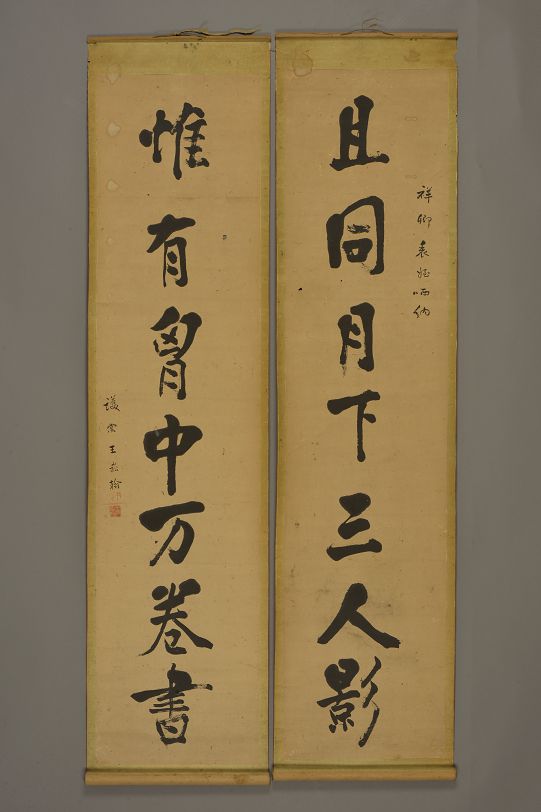 祥卿表姪哂納
且同月下三人影
惟有胷中万卷書
王崧翰